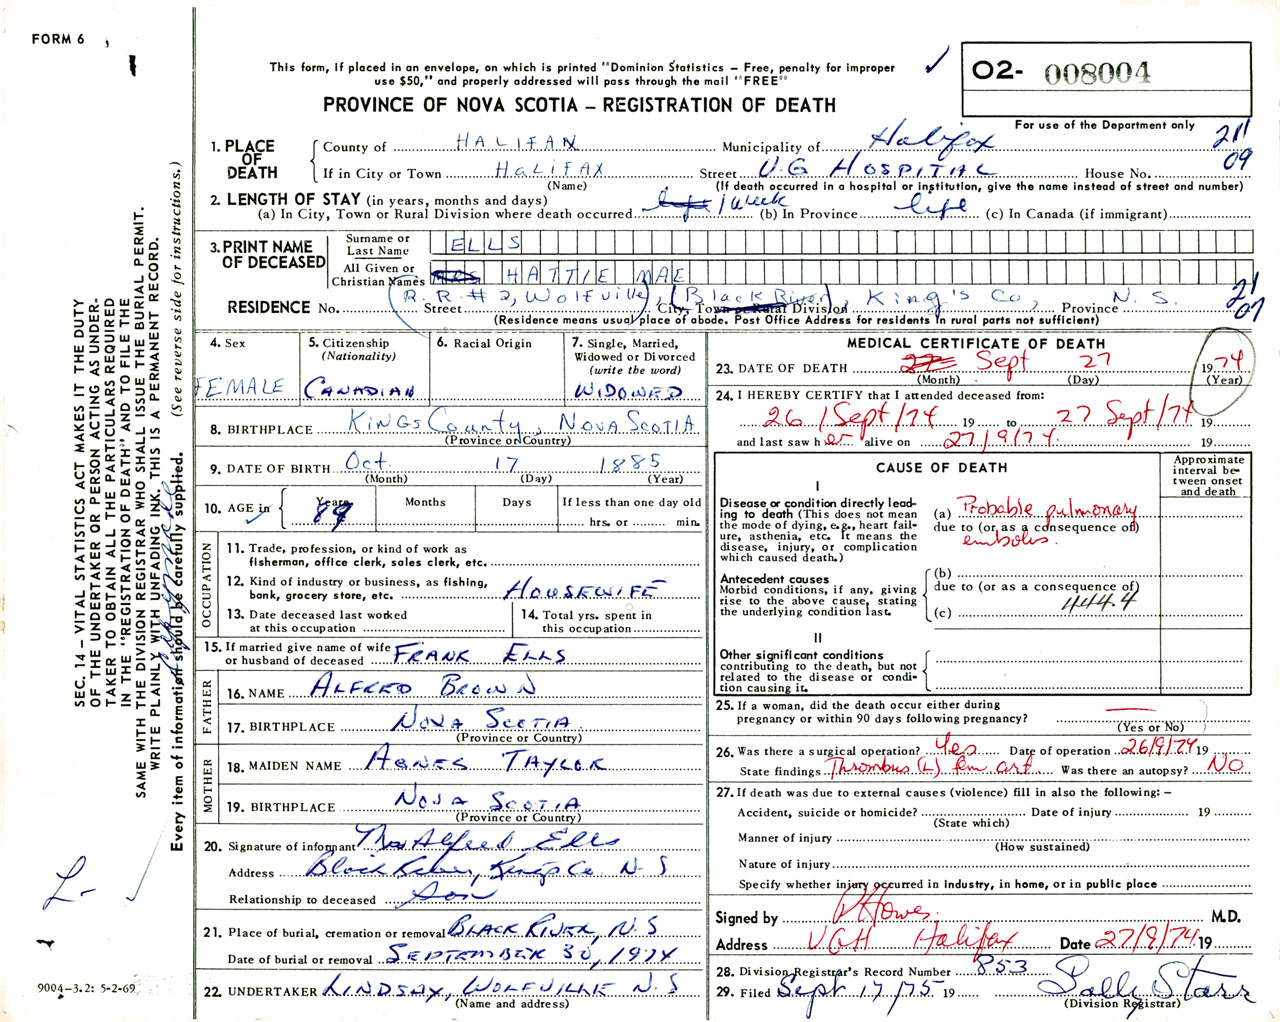 FORM 6
This form, if placed in an envelope, on which is printed "Dominion Statistics – Free, penalty for improper
use $50," and properly addressed will pass through the mail "FREE"
PROVINCE OF NOVA SCOTIA – REGISTRATION OF DEATH
O2- 008004
For use of the Department only
211
09
1. PLACE OF DEATH
County of HALIFAX Municipality of Halifax
If in City or Town HALIFAX Street V.G HOSPITAL House No.
(Name) (If death occurred in a hospital or institution, give the name instead of street and number)
2. LENGTH OF STAY (in years, months and days)
(a) In City, Town or Rural Division where death occurred life 1 week (b) In Province life (c) In Canada (if immigrant)
3. PRINT NAME OF DECEASED
Surname or Last Name ELLS
All Given or Christian Names MRS HATTIE MAE
(R.R.#2, Wolfville), (Black River), King's Co, N.S.
RESIDENCE No. Street City, Town or Rural Division Province
(Residence means usual place of abode. Post Office Address for residents in rural parts not sufficient)
21
07
4. Sex
FEMALE
5. Citizenship
(Nationality)
CANADIAN
6. Racial Origin
7. Single, Married,
Widowed or Divorced
(write the word)
WIDOWED
8. BIRTHPLACE KINGS County, NOVA SCOTIA
(Province or Country)
9. DATE OF BIRTH Oct 17 1885
(Month) (Day) (Year)
10. AGE in Years Months Days If less than one day old
89 hrs. or min.
OCCUPATION
11. Trade, profession, or kind of work as
fisherman, office clerk, sales clerk, etc.
12. Kind of industry or business, as fishing,
bank, grocery store, etc. HOUSEWIFE
13. Date deceased last worked
at this occupation
14. Total yrs. spent in
this occupation
15. If married give name of wife
or husband of deceased FRANK ELLS
FATHER
16. NAME ALFRED BROWN
17. BIRTHPLACE NOVA SCOTIA
(Province or Country)
MOTHER
18. MAIDEN NAME AGNES TAYLOR
19. BIRTHPLACE NOVA SCOTIA
(Province or Country)
20. Signature of informant Alfred Ells
Address Black River, Kings Co N.S
Relationship to deceased Son
21. Place of burial, cremation or removal BLACK RIVER, N.S
Date of burial or removal SEPTEMBER 30, 1974
22. UNDERTAKER LINDSAY, WOLFVILLE N.S
(Name and address)
MEDICAL CERTIFICATE OF DEATH
23. DATE OF DEATH 27 Sept 27 1974
(Month) (Day) (Year)
24. I HEREBY CERTIFY that I attended deceased from:
26/Sept/74 19 to 27 Sept/74 19
and last saw her alive on 27/9/74. 19
CAUSE OF DEATH
Approximate
interval be-
tween onset
and death
I
Disease or condition directly lead-
ing to death (This does not mean
the mode of dying, e.g., heart fail-
ure, asthenia, etc. It means the
disease, injury, or complication
which caused death.)
(a) Probable pulmonary
due to (or as a consequence of)
embolus.
Antecedent causes
Morbid conditions, if any, giving
rise to the above cause, stating
the underlying condition last.
(b)
due to (or as a consequence of)
(c) 444.4
II
Other significant conditions
contributing to the death, but not
related to the disease or condi-
tion causing it.
25. If a woman, did the death occur either during
pregnancy or within 90 days following pregnancy? —
(Yes or No)
26. Was there a surgical operation? Yes Date of operation 26/9/74 19
State findings Thrombus (L) fem art Was there an autopsy? NO
27. If death was due to external causes (violence) fill in also the following: –
Accident, suicide or homicide? Date of injury 19
(State which)
Manner of injury
(How sustained)
Nature of injury
Specify whether injury occurred in industry, in home, or in public place
Signed by Howes. M.D.
Address VGH Halifax Date 27/9/74 19
28. Division Registrar's Record Number 853
29. Filed Sept 17/75 19 Sally Starr
(Division Registrar)
SEC. 14 – VITAL STATISTICS ACT MAKES IT THE DUTY
OF THE UNDERTAKER OR PERSON ACTING AS UNDER-
TAKER TO OBTAIN ALL THE PARTICULARS REQUIRED
IN THE "REGISTRATION OF DEATH" AND TO FILE THE
SAME WITH THE DIVISION REGISTRAR WHO SHALL ISSUE THE BURIAL PERMIT.
WRITE PLAINLY WITH UNFADING INK. THIS IS A PERMANENT RECORD.
Every item of information should be carefully supplied. (See reverse side for instructions.)
L-
9004-3.2: 5-2-69